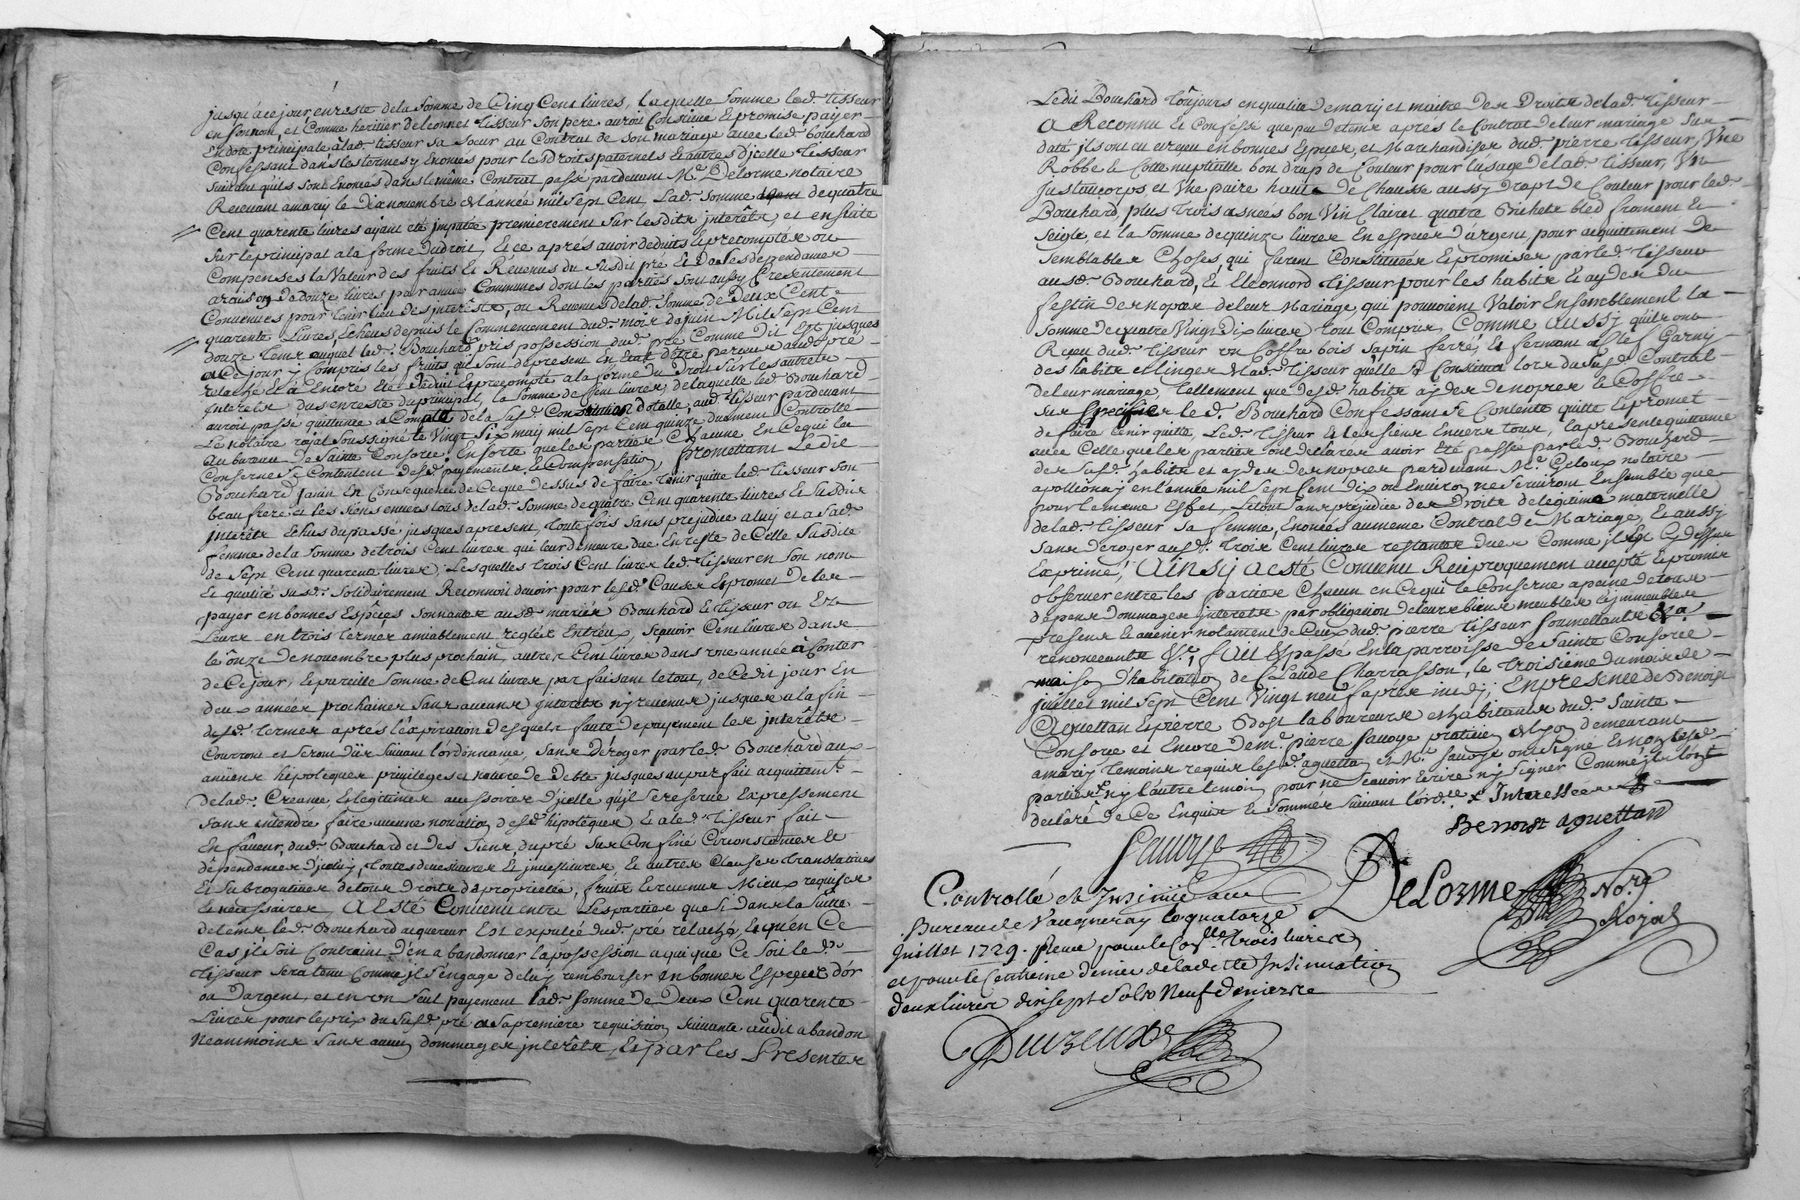 jusqu'a ce jour en reste de la somme de Cinq Cent livres, laquelle somme led. tisseur
en son nom, et Comme heritier de leonnet tisseur son pere auroit Constitué et promise payer
En dote principale a lad. tisseur sa soeur au Contrat de son mariage avec led. bouchard
Confessant dans les termes y Enoncés pour les droits paternels et autres d'jcelle tisseur
suivant qu'ils sont Enoncés dans le même Contrat passé pardevant Me. Delorme notaire
Recevant a mariy le dix novembre de l'année mil sept Cent, Lad. somme de quatre
Cent quarente livres ayant eté jmputée premierement sur lesdits jnterêts, et en suite
sur le principal a la forme du droit, Et ce apres avoir deduits et precomptés ou
Compensés la Valeur des fruits et Revenus du susdit pré
a raison de douze livres par année Communes dont les parties sont aussy presentement
Convenues pour tenir lieu des jnterêts, ou Revenus de lad. somme de Deux Cent
quarente Livres, Echeus depuis le Commencement dud. mois de juin Mil sept Cent
douze tems auquel led. Bouchard pris possession dud. pré Comme dit Est jusques
a Ce jour y Compris les fruits qui sont a present en Etat d'être perceus aud. pré
relaché Et a Encore eté deduit et precompté a la forme du Droit sur les autres
jnterêts dus en reste du principal, la somme de Cent livres de laquelle led. Bouchard
auroit passé quittance a Compte de la susd. Constitution dotalle, aud. tisseur pardevant
Le notaire rojal soussigné le Vingt six may mil sept Cent quinze dument Controllé
Au bureau de sainte Consorce, En sorte que les parties Chacune En ce qui la
Conserne se Contentent desd. payements et Compensation, promettant Ledit
Bouchard janin En Consequence de Ce que dessus de faire tenir quitte led. tisseur son
beau frere, et les siens envers tous de lad. somme de quatre Cent quarente livres et susdits
jnterêts Echus du passé jusques a present, toutefois sans prejudice a luy et a sad.
femme de la somme de trois Cent livres qui leur demeure due En reste de Celle susdite
de sept Cent quarente livres, Lesquelles trois Cent livres led. tisseur en son nom
et qualité susd. solidairement Reconnoit devoir pour lesd. Causes Et promet de les
payer en bonnes Espèces sonnantes ausd. mariés Bouchard et tisseur ou Es
Leurs en trois termes amiablement reglés Entreux, sçavoir Cent livres dans
le onze de novembre plus prochain, autres Cent livres dans une année a Conter
de Ce jour, Et pareille somme de Cent livres par faisant le tout, de Cedit jour En
deux années prochaines sans aucuns jnterêts ny revenus jusques a la fin
desd. termes apres l'expiration desquels faute de payement les jnterêts
Courront et seront dus suivant l'ordonnance, sans déroger par led. Bouchard aux
anciens hipoteques privileges et nature de debte jusques au parfait acquittemt.
de lad. Creance, Et legitimes accessoires d'jcelle qu'jl se reserve Expressement
sans entendre faire aucune novation desd. hipoteques, Et a led. tisseur fait
En faveur, dud. Bouchard et des siens du pré sur Confiné Circonstances et
dépendances d'jceluy, toutes devestitures Et jnvestitures Et autres Clauses translatives
Et subrogatives de tous droits de propriétés, fruits et revenus Mieux requises
et necessaires, A Esté Convenu entre Les parties que si dans la suitte
de tems led. Bouchard acquereur Est expulsé dud. pré relaché, Et qu'en Ce
Cas jl soit Contraint d'en abandonner la possession a qui que Ce soit led.
tisseur sera tenu Comme jl s'engage de luy rembourser en bonnes Especes d'or
ou d'argent, et en un seul payement Lad. somme de Deux Cent quarente
Livres pour le prix du susd. pré a sa premiere requisition suivante aud. abandon
Neanmoins sans aucun dommages jnterêts, Et par les Presentes
Ledit Bouchard toujours en qualité de mary et maitre des Droits de lad. tisseur
A Reconnu Et Confessé que peu de tems après le Contrat de leur mariage sur
daté jls ont eu et reçu en bonnes Especes, et Marchandises dud. pierre tisseur, Une
Robbe et Cotte nuptialle bon drap de Couleur pour l'usage de lad. tisseur, Un
justaucorps et Une paire haut de Chausse aussy drapt de Couleur pour led.
Bouchard, plus trois asnées bon Vin Clairet quatre Bichets bled froment Et
seigle, et la somme de quinze livres En especes d'argent, pour acquittement De
semblables Choses qui furent Constituées Et promises par led. tisseur
ausd. Bouchard, Et Eleonnord tisseur pour les habits Et aydes du
festin des nopces de leur Mariage, qui pouvoient Valoir Ensemblement la
somme de quatre Vingt dix livres tout Compris, Comme aussy qu'ils ont
Reçeu dud. tisseur un Coffre bois sapin ferré, Et fermant a Clef Garny
des habits et linges de lad. tisseur qu'elle se Constitua lors du susd. Contrat
de leur mariage, tellement que desd. habits aydes de nopces et Coffre
sus specifiés led. Bouchard Confessant se Contente quitte Et promet
de faire tenir quitte, Led. tisseur Et les siens Envers tous, la presente quittance
avec Celle que les parties ont declarés avoir été passée par led. Bouchard
des susd. habits et aydes des nopces pardevant Me. Geloux notaire
apollionay en l'année mil sept Cent dix ou Environ ne serviront Ensemble que
pour le meme Effet, Le tout sans prejudice des Droits de legitime maternelle
de lad. tisseur sa femme, Enoncés au meme Contrat de Mariage, Et aussy
sans deroger ausd. trois Cent livres restantes dues Comme jl Est Cy dessus
Exprimé, Ainsy a esté Convenu Reciproquement accepté Et promis
observer entre les parties Chacun en Ce qui le Conserne a peine de tous
depens dommages jnterêts par obligation de leurs biens meubles et jmmeubles
presens Et avenir notament de Ceux dud. pierre tisseur soumettants &a.
renonceants &c. fait Et passé En la parroisse de Sainte Consorce
maison d'habitation de Claude Charrasson, le troisieme du mois de
juillet mil sept Cent Vingt neuf apres midy, En presence de Benoist
Aguettan Et pierre Bost laboureurs et habitants dud. Sainte
Consorce et Encore de me. pierre sauvoye praticien demeurant
a mariy temoins requis lesd. aguettan et Me. sauvoye ont signé Et non lesd.
parties x ny l'autre temoin pour ne scavoir Ecrire ny signer Comme jls l'ont
declaré de Ce Enquis et sommés suivant l'ordce. x Interessées
Sauvoye
Benoist aguettan
DeLorme Nore.
Rojal
Controllé et Insinüé au
Bureau de Vaugneray le quatorze
Juillet 1729. Reçu pour le Conlle. trois livres
et pour le Centieme denier de ladette Insinuation
deux livres dixsept sols Neuf deniers